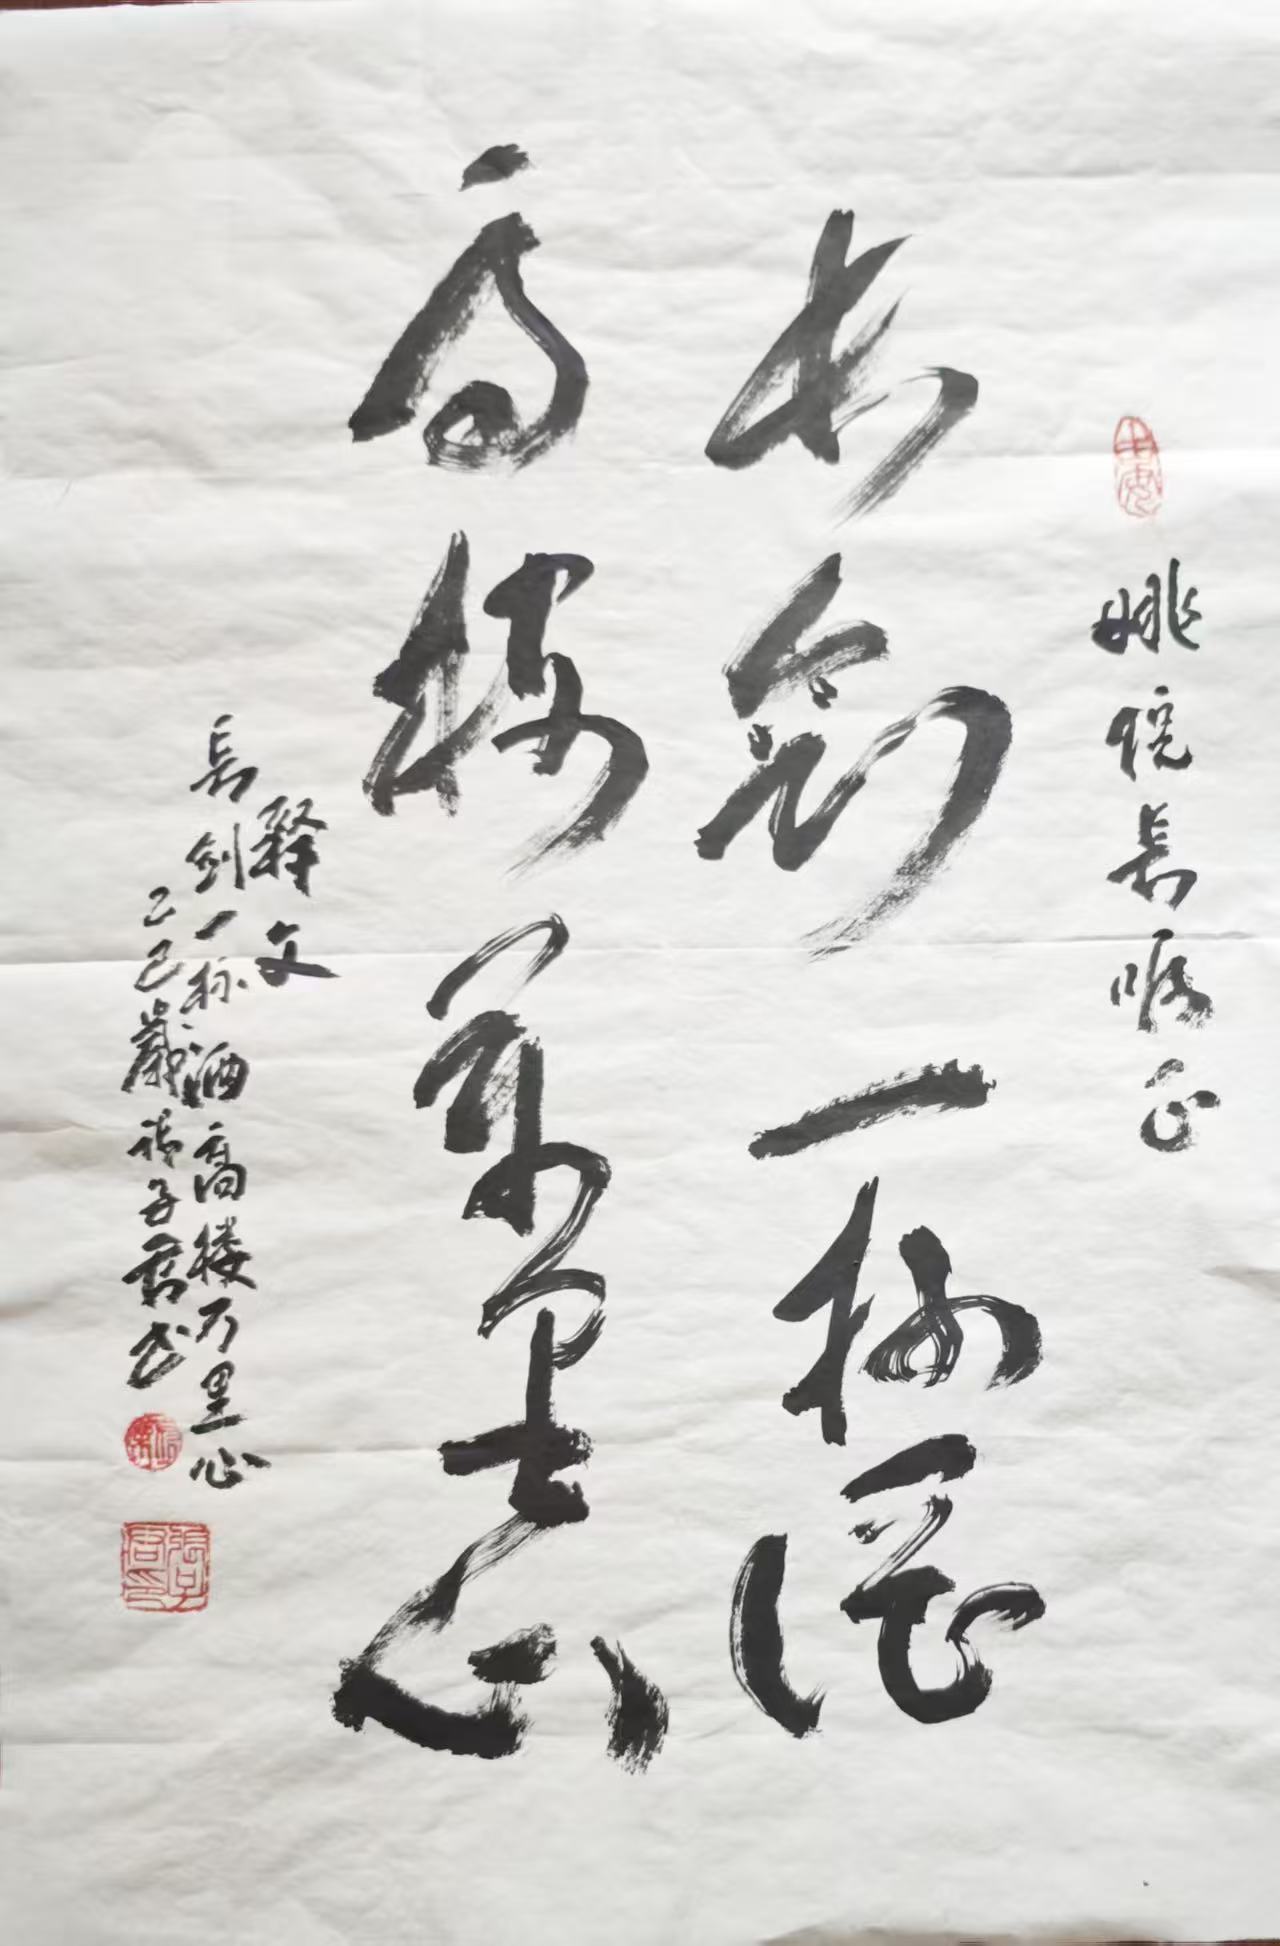 姚院长嘱正
长剑一杯酒
高楼万里心
释文
长剑一杯酒高楼万里心
乙巳岁诗子君书